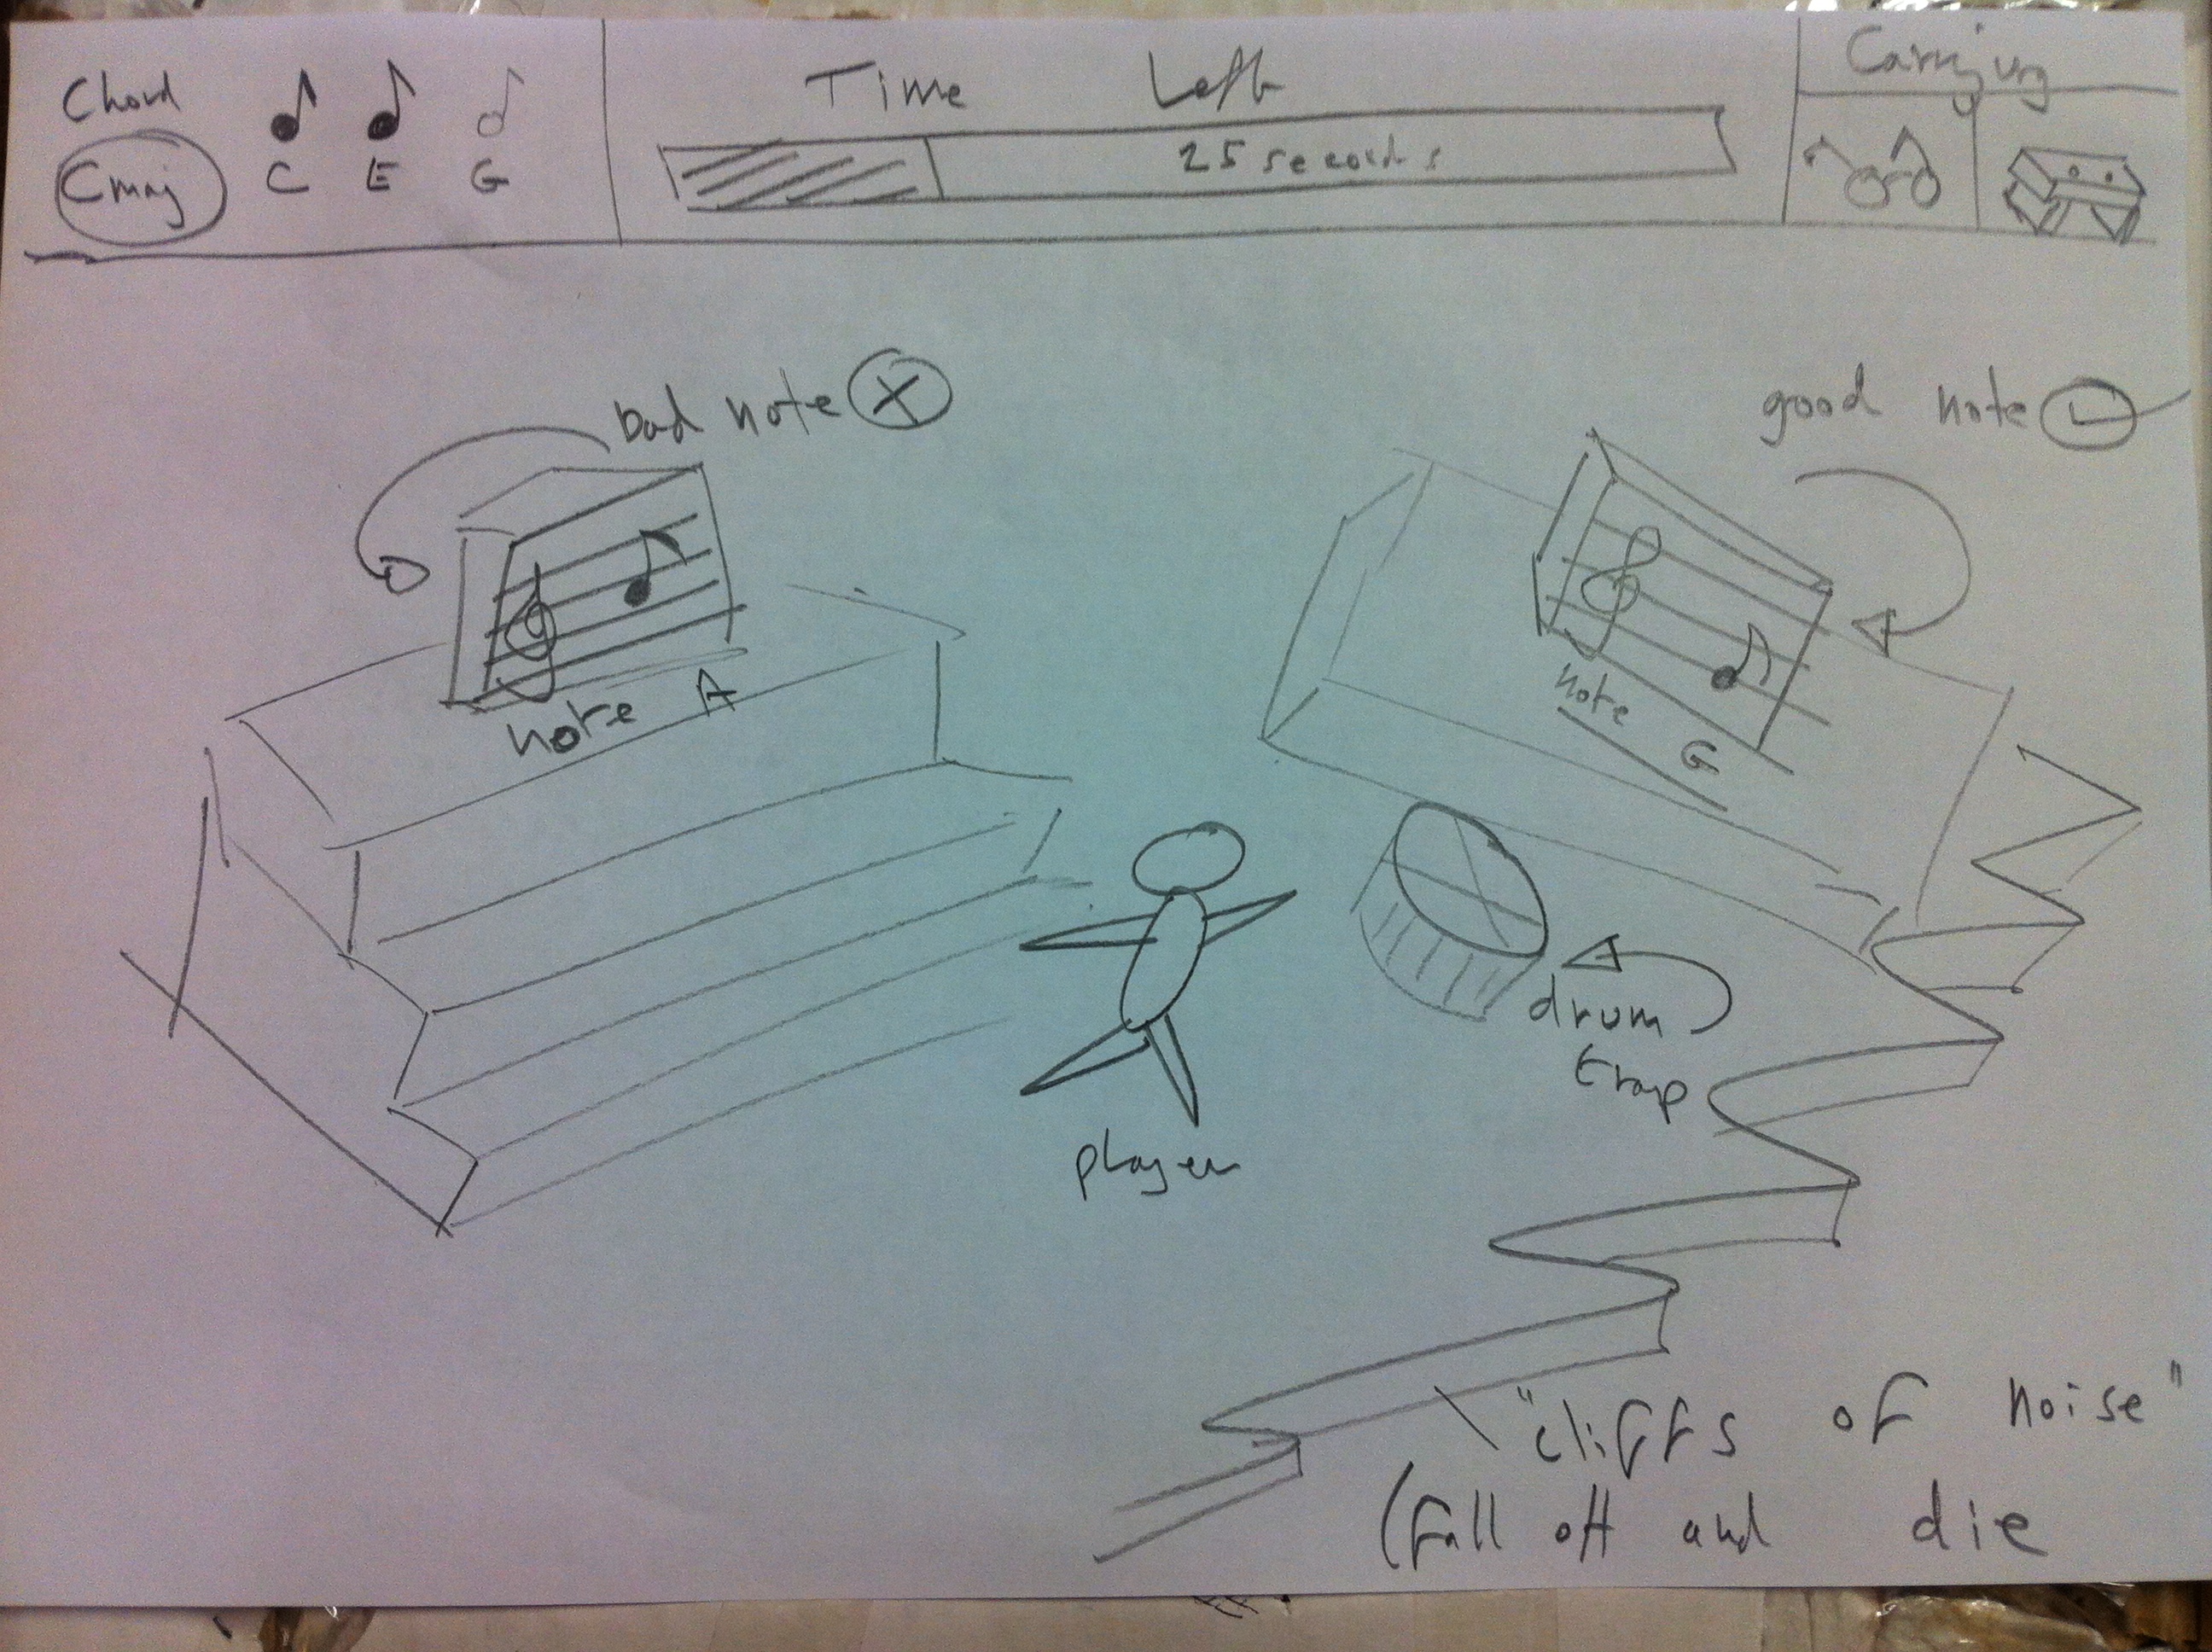 Chord
Cmaj
C E G
Time Left
25 seconds
Carrying
bad note
X
good note
note A
note G
player
drum
trap
"cliffs of noise"
(fall off and die